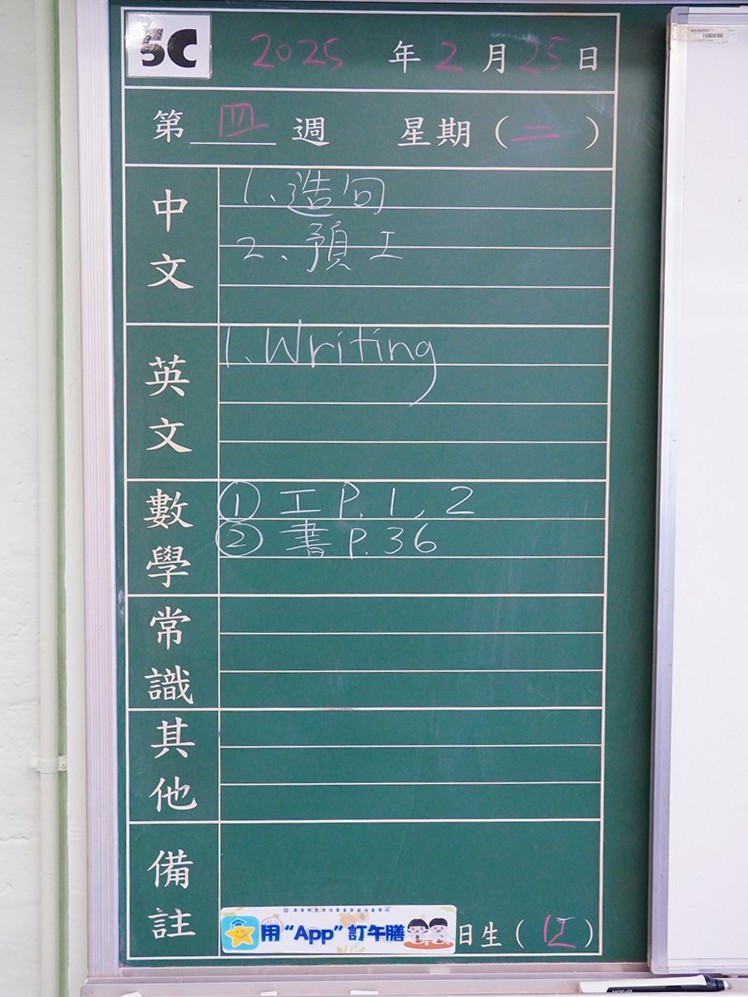 5C 2025 年 2 月 25 日
第 四 週 星期 ( 二 )
中文
1、造句
2、預工
英文
1、Writing
數學
① 工 P.1,2
② 書 P.36
常識
其他
備註
用“App”訂午膳
日生 ( )